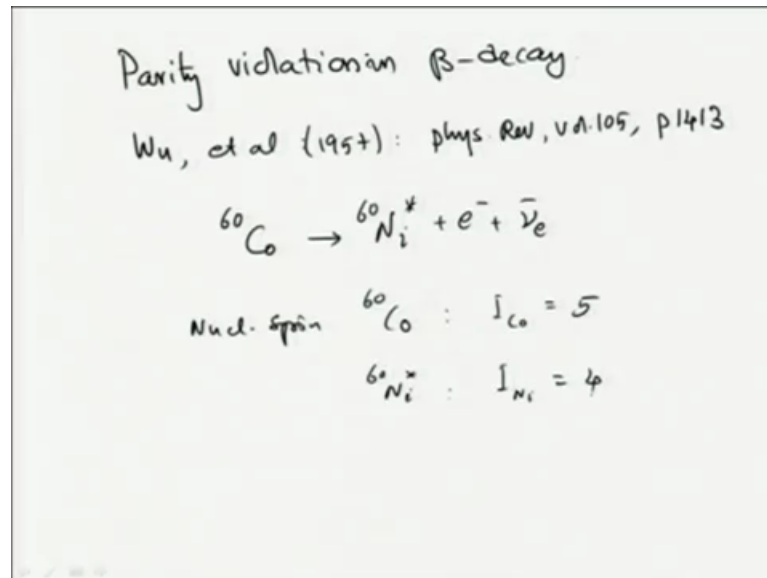 Parity violation in β-decay
Wu, et al (1957): phys. Rev, vol. 105, p1413
⁶⁰Co → ⁶⁰Ni* + e⁻ + ν̄e
Nucl. Spin ⁶⁰Co : I_Co = 5
⁶⁰Ni* : I_Ni = 4